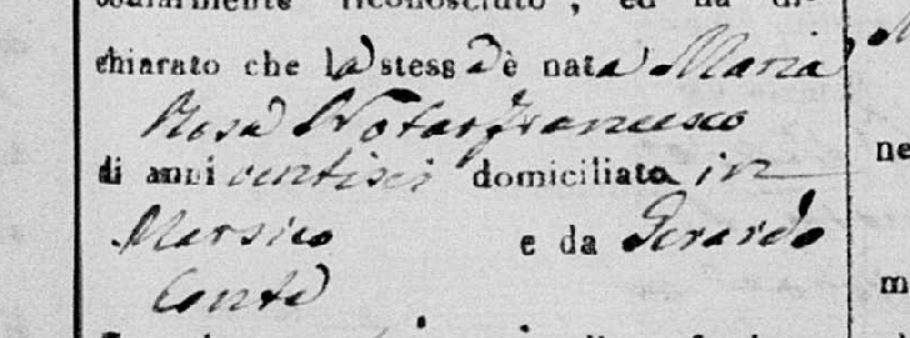 sonalmente riconosciuto, ed ha di-
chiarato che la stessa è nata da Maria
Rosa Notarfrancesco
di anni ventisei domiciliata in
Marsico e da Gerardo
Conte